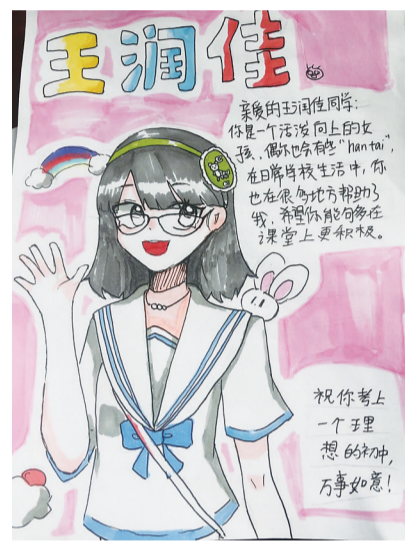 王润佳
亲爱的王润佳同学：
你是一个活泼向上的女
孩，偶尔也会有些“han tai”，
在日常学校生活中，你
也在很多地方帮助了
我，希望你能够多在
课堂上更积极。
祝你考上
一个理
想的初中，
万事如意！